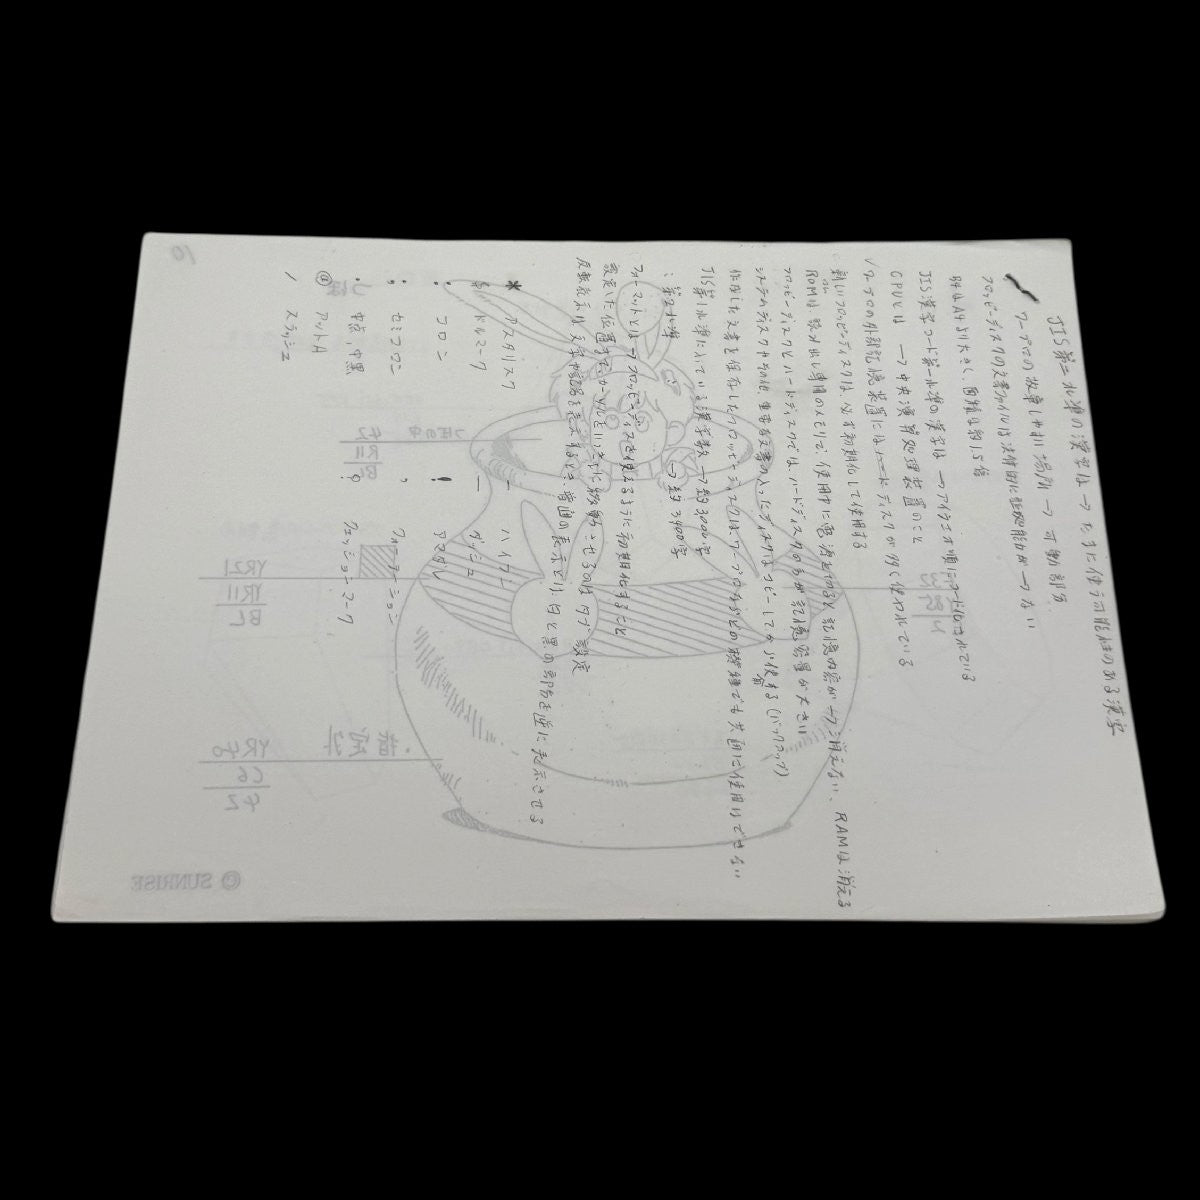 JIS第二水準の漢字は → たまに使う可能性のある漢字
ワープロの故障しやすい場所 → 可動部分
フロッピーディスクの文書ファイルは
B4はA4より大きく、面積は約1.5倍
JIS漢字コード第一水準の漢字は → アイウエオ順にコード化されている
CPUとは → 中央演算処理装置のこと
パソコンの外部記憶装置にはハードディスクが多く使われている
新しいフロッピーディスクは必ず初期化して使用する
ROMは読み出し専用のメモリで、使用中に電源を切ると記憶内容が 消えない、RAMは消える
フロッピーディスクとハードディスクでは、ハードディスクの方が記憶容量が大きい
システムディスクやその他 重要な文書の入ったディスクはコピーしてから使用する(バックアップ)
作成した文書を保存したフロッピーディスクはすべてワープロなどの機種でも共通に使用はできない
JIS第1水準に入っている漢字数 → 約3000字
〃 第2水準 → 約3400字
フォーマットとは → フロッピーディスクを使えるように初期化すること
設定した位置までカーソルをいっきに移動させるのはタブ設定
反転表示は文字や記号を表示するとき、普通の表示とは、白と黒の部分を逆に表示させる
* アスタリスク
$ ドルマーク
: コロン
; セミコロン
・ 中点、中黒
@ アットA
/ スラッシュ
- ハイフン
— ダッシュ
!
,
?
つぼ
つぼの中
42
R11
BL
YR21
YR11
BL
YR40
C6
42
・指定外
© SUNRISE
10